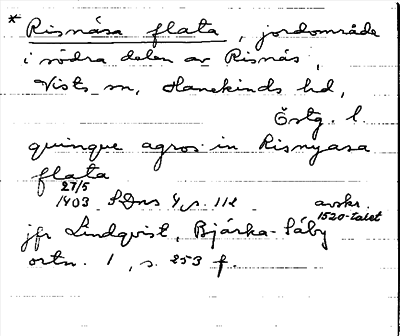 * Risnåsa flata, jordområde
i södra delen av Risnäs,
Vists sn, Hanekinds hd,
Östg. l.
quinque agros in Risnyasa
flata
27/5
1403 SDns 1, s. 112 avskr.
1520-talet
jfr Lindqvist, Bjärka-Säby
ortn. 1, s. 253 f.